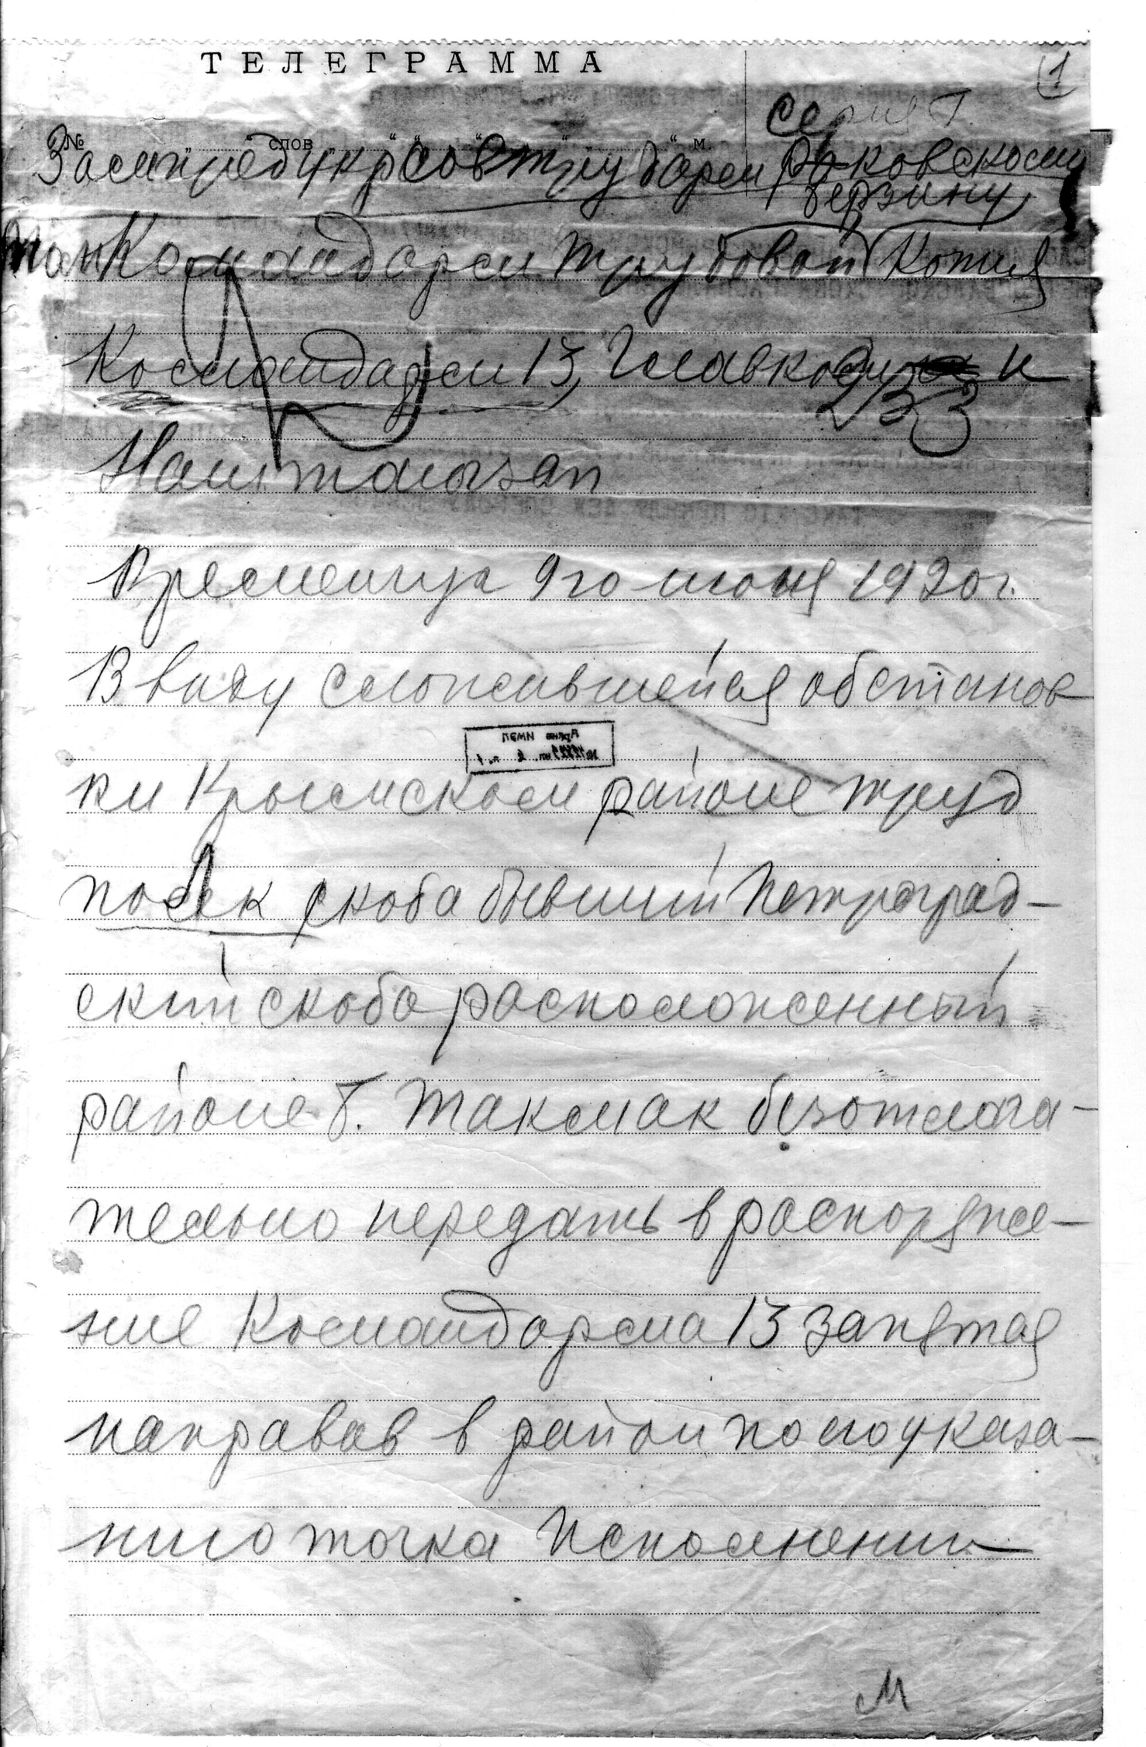 ТЕЛЕГРАММА
1
Серия Г.
№ слов м.
Зампредукрсовтрударм Раковскому
Берзину
Командарм трудовой Копия
Командарм 13, Главком и
233
Наштаюзап
Кременчуг 9го июня 1920 г.
В виду сложившейся обстанов
ки Крымском районе труд
полк скоба бывший Петроград-
ский скоба расположенный
районе Б. Токмак безотлага-
тельно передать в распоряже-
ние Командарма 13 запятая
направив в район по его указа-
нию точка Исполнении
М